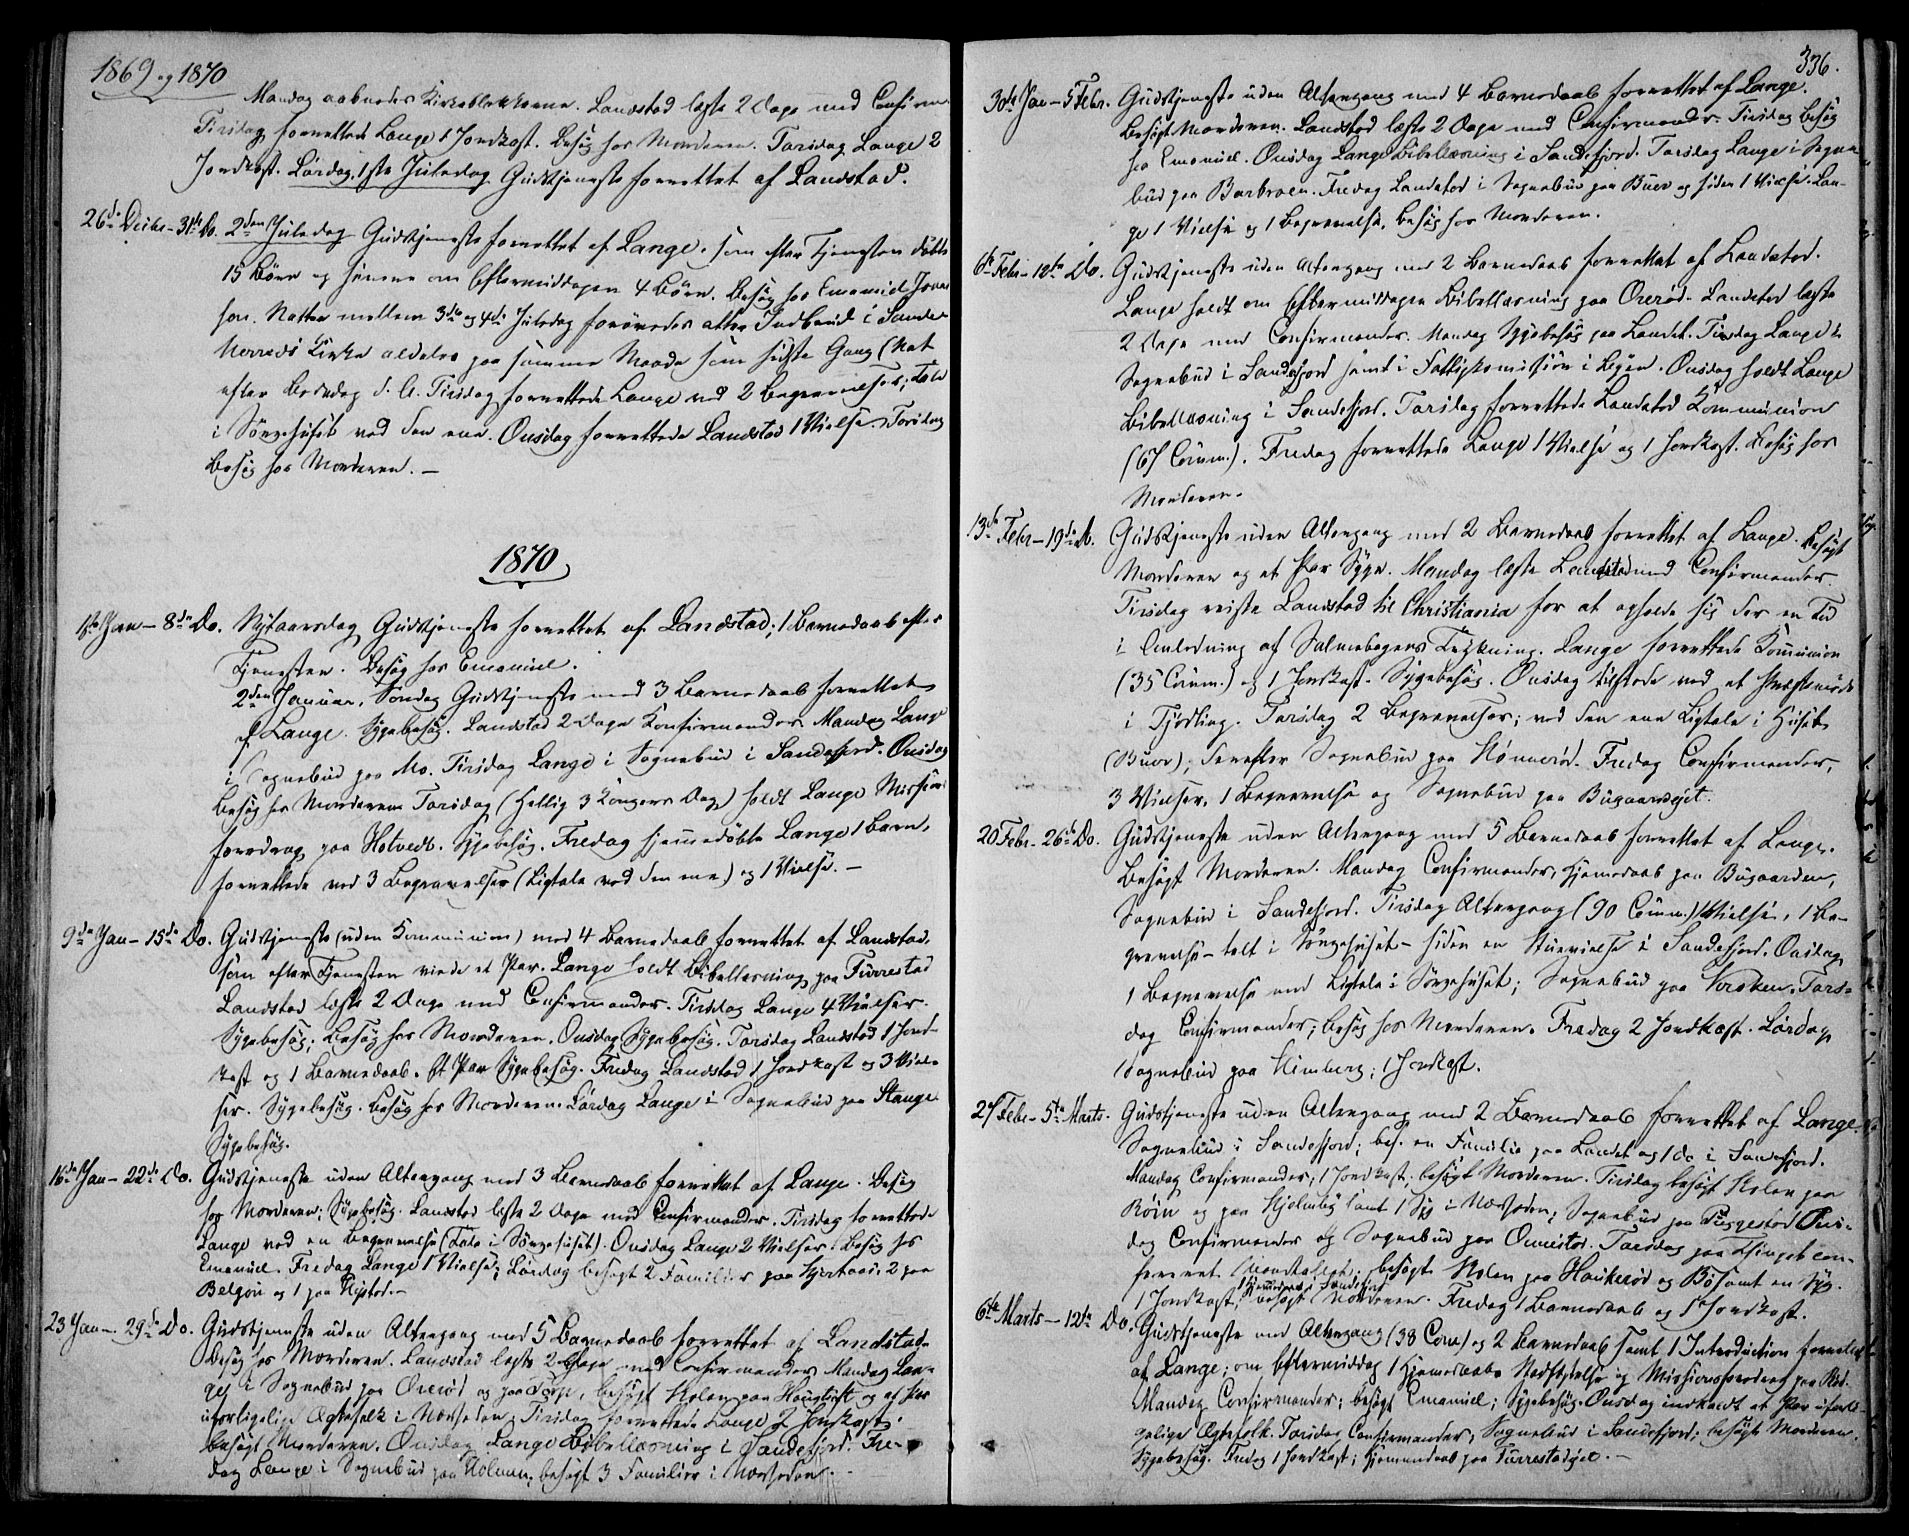 1869 og 1870
Mandag aabnedes Kirkeblokkene. Landstad læste 2 Dage med Confirm.
Tirsdag forrettede Lange 1 Jordkast. Besøg hos Morderen. Torsdag Lange 2
Jordkast. Lørdag, 1ste Juledag Gudstjeneste forrettet af Landstad.
26de Decbr – 31te Do. 2den Juledag Gudstjeneste forrettet af Lange, som efter Tjenesten døbte
15 Børn og senere om Eftermiddagen 4 Børn. Besøg hos Emanuel Jona-
sen. Natten mellem 3die og 4de Juledag forøvedes atter Indbrud i Sande-
herreds Kirke aldeles paa samme Maade som sidste Gang (Nat
efter Bededag d. A. Tirsdag forrettede Lange ved 2 Begravelser; Tale
i Sørgehuset ved den ene. Onsdag forrettede Landstad 1 Vielse. Torsdag
Besøg hos Morderen. –
1870
1ste Jan – 8de Do. Nytaarsdag Gudstjeneste forrettet af Landstad; 1 Barnedaab efter
Tjenesten. Besøg hos Emanuel.
2den Januar, Søndag Gudstjeneste med 3 Barnedaab forrettet
af Lange. Sygebesøg. Landstad 2 Dage Konfirmander. Mandag Lange
i Sognebud paa Mo. Tirsdag Lange i Sognebud i Sandefjord. Onsdag
Besøg hos Morderen. Torsdag (Hellig 3 Kongers Dag) holdt Lange Missions-
foredrag paa Hotvedt. Sygebesøg. Fredag hjemmedøbte Lange 1 Barn,
forrettede ved 3 Begravelser (Ligtale ved den ene) og 1 Vielse. –
9de Jan – 15de Do. Gudstjeneste (uden Kommunion) med 4 Barnedaab forrettet af Landstad,
som efter Tjenesten viede et Par. Lange holdt Bibellæsning paa Furrestad
Landstad læste 2 Dage med Confirmander. Tirsdag Lange 4 Vielser.
Sygebesøg; Besøg hos Morderen. Onsdag Sygebesøg. Torsdag Landstad 1 Jord-
kast og 1 Barnedaab. Et Par Sygebesøg. Fredag Landstad 1 Jordkast og 3 Viel-
ser. Sygebesøg. Besøg hos Morderen. Lørdag Lange i Sognebud paa Stange
Sygebesøg.
16de Jan – 22de Do. Gudstjeneste uden Altergang med 3 Barnedaab forrettet af Lange. Besøg
hos Morderen; Sygebesøg. Landstad læste 2 Dage med Confirmander. Tirsdag forrettede
Lange ved en Begravelse (Tale i Sørgehuset). Onsdag Lange 2 Vielser. Besøg hos
Emanuel. Fredag Lange 1 Vielse; Lørdag besøgt 2 Familier paa Hjertaas, 2 paa
og 1 paa
23 Jan – 29de Do. Gudstjeneste uden Altergang med 5 Barnedaab forrettet af Landstad.
Besøg hos Morderen. Landstad læste 2 Dage med Confirmander. Mandag Lan-
ge i Sognebud paa Orerød og paa Torp, besøgt Skolen paa og et Par
uforligelige Ægtefolk i Tirsdag forrettede Lange 2 Jordkast.
Besøgt Morderen. Onsdag Lange Bibellæsning i Sandefjord. Fre-
dag Lange i Sognebud paa besøgt 3 Familier i
336.
30te Jan – 5 Febr. Gudstjeneste uden Altergang med 4 Barnedaab forrettet af Lange.
Besøgt Morderen. Landstad læste 2 Dage med Confirmander. Tirsdag besøg
hos Emanuel. Onsdag Lange Bibellæsning i Sandefjord. Torsdag Lange i Sogne-
bud paa Barbroen. Fredag Landstad i Sognebud paa Buer og siden 1 Vielse. Lan-
ge 1 Vielse og 1 Begravelse. Besøg hos Morderen.
6te Febr – 12te Do. Gudstjeneste uden Altergang med 2 Barnedaab forrettet af Landstad.
Lange holdt om Eftermiddagen Bibellæsning paa Orerød. Landstad læste
2 Dage med Confirmander. Mandag Sygebesøg paa Landet. Tirsdag Lange 2
Sognebud i Sandefjord samt i Fattigkommission i Byen. Onsdag holdt Lange
Bibellæsning i Sandefjord. Torsdag forrettede Landstad Kommunion
(67 Comm.). Fredag forrettede Lange 1 Vielse og 1 Jordkast. Besøg hos
Morderen.
13de Febr – 19de Do. Gudstjeneste uden Altergang med 2 Barnedaab forrettet af Lange. Besøgt
Morderen og et Par Syge. Mandag læste Landstad med Confirmander
Tirsdag reiste Landstad til Christiania for at opholde sig der en Tid
i Anledning af Salmebogens Trykning. Lange forrettede Kommunion
(35 Comm.) og 1 Jordkast. Sygebesøg. Onsdag tilstede ved et Præstemøde
i Tjødling. Torsdag 2 Begravelser; ved den ene Ligtale i Huset
(Buer); derefter Sognebud paa Fredag Confirmander,
3 Vielser, 1 Begravelse og Sognebud paa Bugaardsejet.
20 Febr – 26de Do. Gudstjeneste uden Altergang med 5 Barnedaab forrettet af Lange.
Besøgt Morderen. Mandag Confirmander, Hjemmedaab paa Bugaarden,
Sognebud i Sandefjord. Tirsdag Altergang (90 Comm.) 1 Vielse, 1 Be-
gravelse – talt i Sørgehuset – siden en Huusvielse i Sandefjord. Onsdag
1 Begravelse med Ligtale i Sørgehuset; Sognebud paa Virsken. Tors-
dag Confirmander; besøg hos Morderen. Fredag 2 Jordkast. Lørdag
1 Sognebud paa Himberg; 1 Jordkast.
27 Febr – 5te Marts. Gudstjeneste uden Altergang med 2 Barnedaab forrettet af Lange.
Sognebud i Sandefjord; bes. en Familie paa Landet og 1 do i Sandefjord.
Mandag Confirmander; 1 Jordkast; besøgt Morderen. Tirsdag besøgt Skolen paa
og paa Hjelmby samt 1 Syg i Sognebud paa Ons-
dag Confirmander og Sognebud paa Torsdag paa Thinget con-
fereret besøgt Skolen paa Haukerød og Bø samt en Syg.
1 Jordkast; besøgt Morderen. Fredag 1 Barnedaab og 1 Jordkast.
6te Marts – 12te Do. Gudstjeneste med Altergang (38 Com) og 2 Barnedaab samt 1 Introduction forrettet
af Lange; om Eftermiddag 1 Hjemmedaabs Stadfæstelse og Missionsforedrag paa
Mandag Confirmander; besøgt Emanuel; Sygebesøg. Onsdag indkaldt et Par uforli-
gelige Ægtefolk. Torsdag Confirmander, Sognebud i Sandefjord; besøgt Morderen.
Sygebesøg. Fredag 1 Jordkast; Hjemmedaab paa Furrestadejet. –